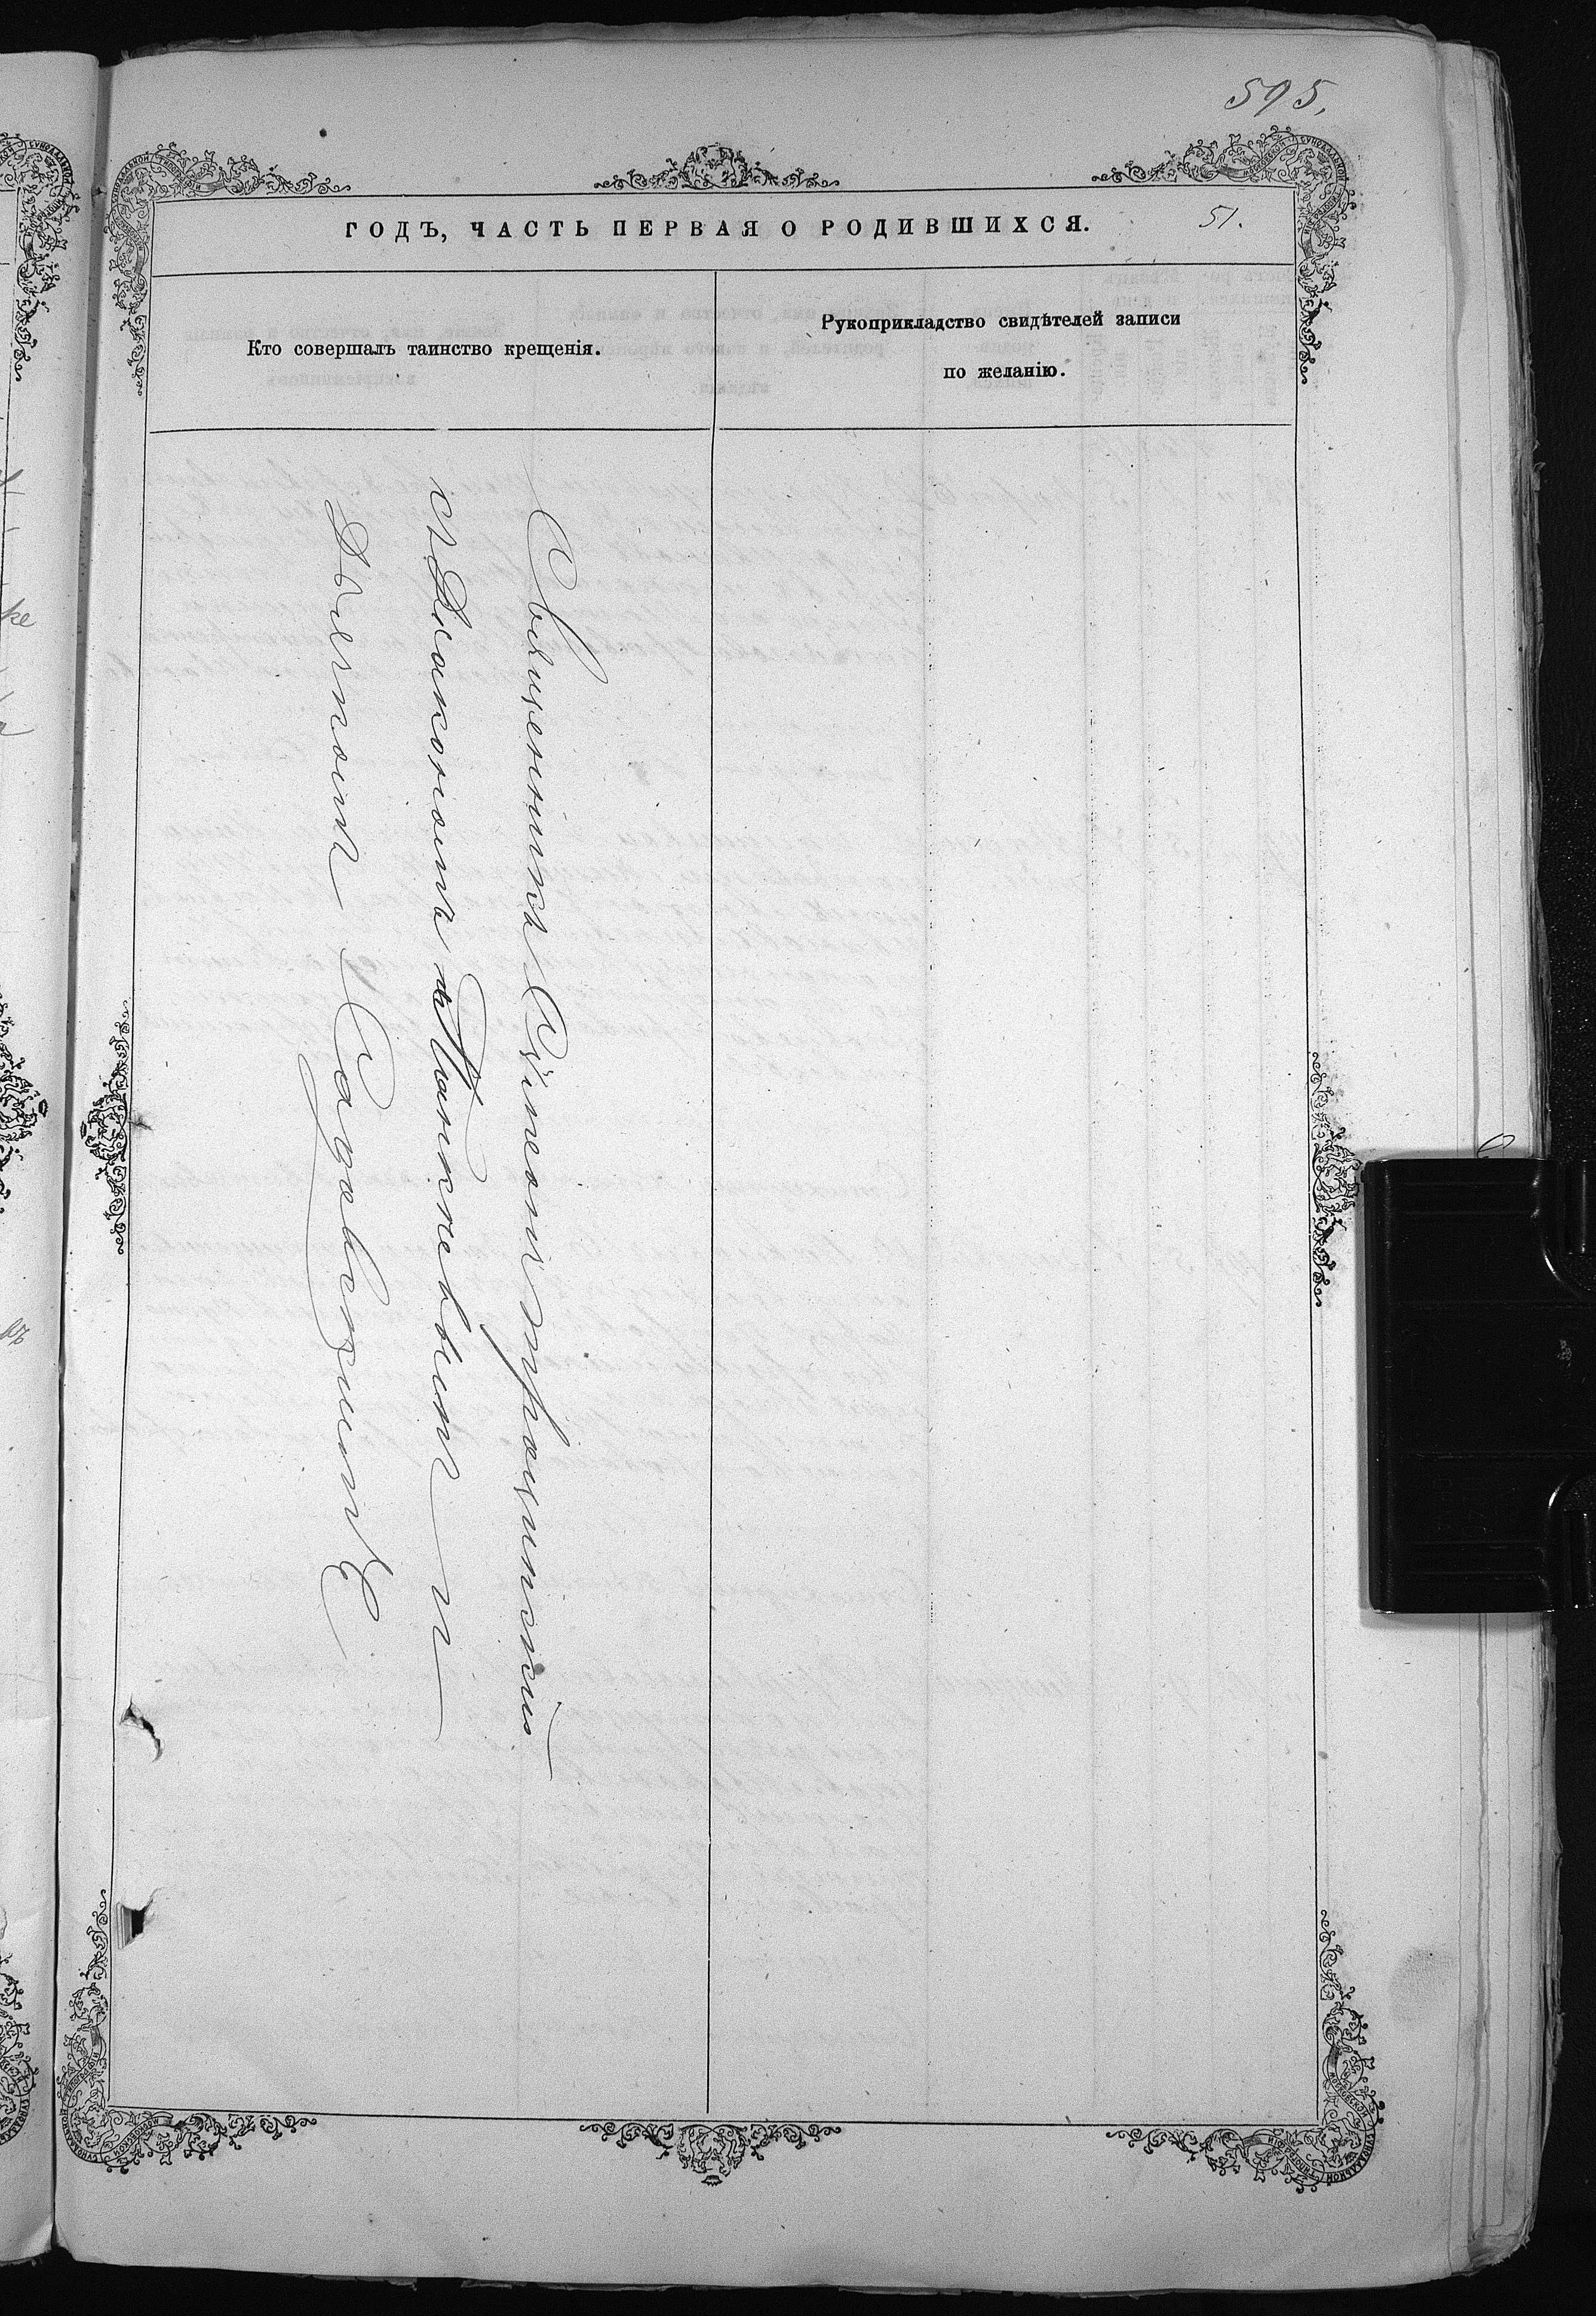 595.
ГОДЪ, ЧАСТЬ ПЕРВАЯ О РОДИВШИХСЯ.
51.
Кто совершалъ таинство крещенія.
Рукоприкладство свидѣтелей записи
по желанію.
Священникъ Сѵмеонъ Троицкій
съ Діакономъ Минневымъ и
Дьячкомъ